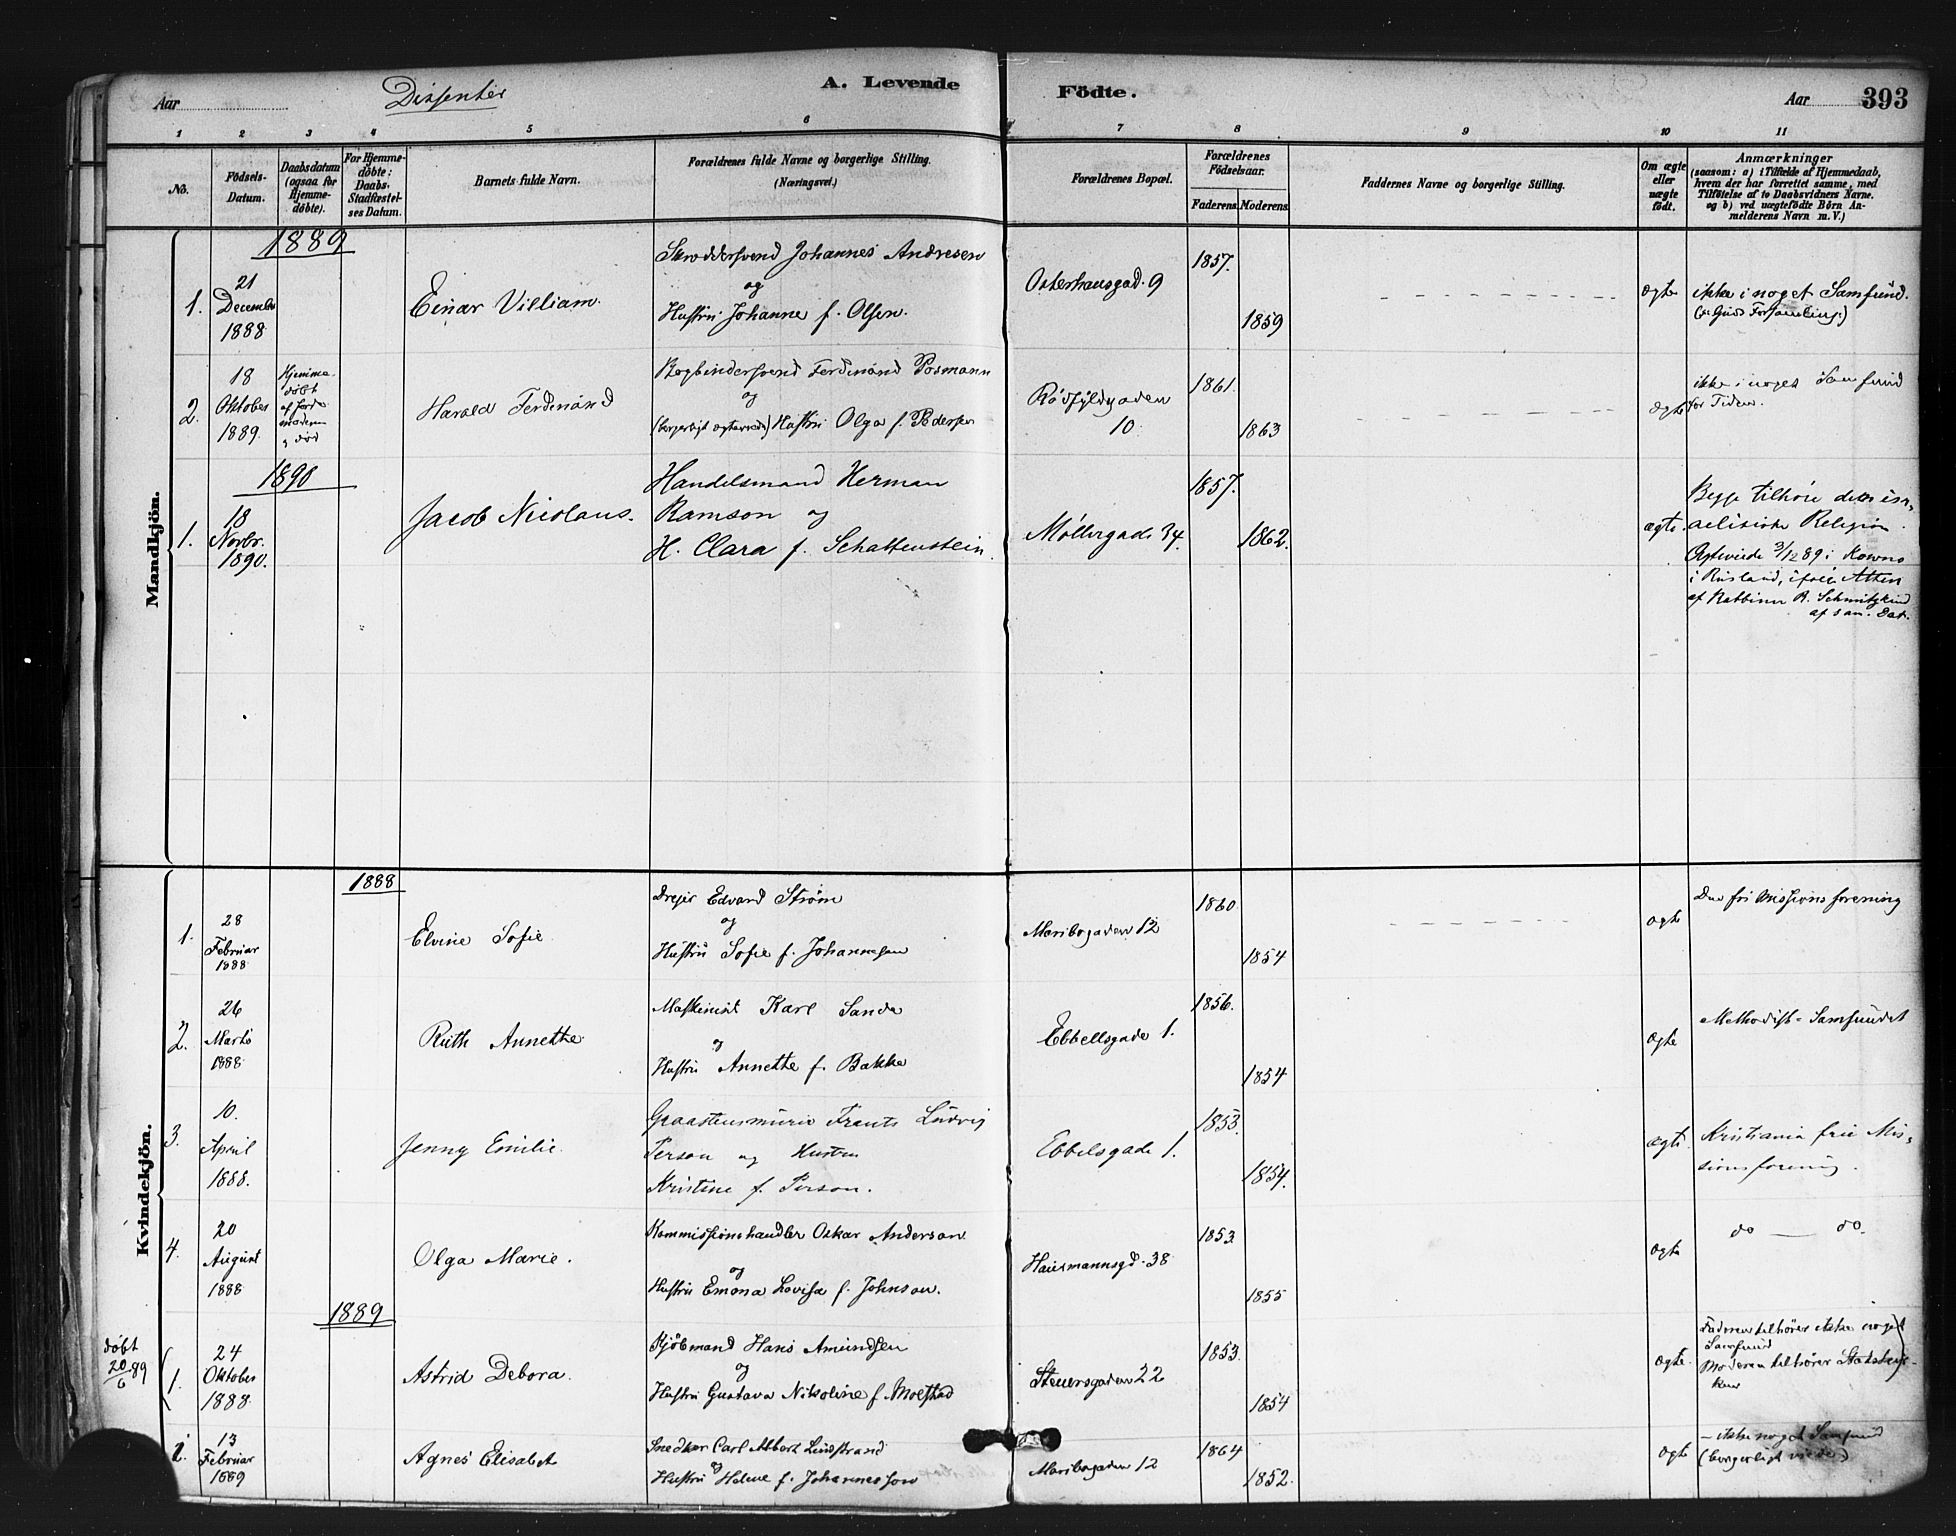 Aar
Dissenter
A. Levende
Födte.
Aar
393
1 2 3 4 5 6 7 8 9 10 11
No.
Födsels-
Datum.
Daabsdatum
(ogsaa for
Hjemme-
döbte).
For Hjemme-
döbte:
Daabs-
Stadfæstel-
ses Datum.
Barnets fulde Navn.
Forældrenes fulde Navne og borgerlige Stilling.
(Næringsvei.)
Forældrenes Bopæl.
Forældrenes
Födselsaar.
Faderens.
Moderens.
Faddernes Navne og borgerlige Stilling.
Om ægte
eller
uægte
födt.
Anmærkninger
(saasom: a) i Tilfælde af Hjemmedaab,
hvem der har forrettet samme, med
Tilföielse af to Daabsvidners Navne.
og b) ved uægtefödte Börn An-
melderens Navn m. V.)
Mandkjön.
1889
1.
21
December
1888
Einar Villiam
Skræddersvend Johannes Andresen
og
Hustru Johanne f. Olsen.
Osterhausgad. 9
1857.
1859
ægte
ikke i noget Samfund.
(i: Guds Forsamling:)
2.
18
Oktober
1889.
Hjemme
døbt
af Jorde
moderen
og død
Harald Ferdinand
Bogbindersvend Ferdinand Posmann
og
(borgerligt ægteviede) Hustru Olga f. Pedersen
Rødfyldgaden
10
1861.
1863
ægte
ikke i noget Samfund
for Tiden.
1890
1.
18
Novbr.
1890.
Jacob Nicolaus.
Handelsmand Herman
Ramson og
H. Clara f. Schattenstein.
Møllergade 34.
1857.
1862.
ægte.
Begge tilhøre den isra-
aelitiske Religion.
Ægteviede 3/12 89 i Kowno
i Rusland, ifølge Attest
af Rabbiner R. Schmitzkind
af sam. Dat.
Kvindekjön.
1888
1.
28
Februar
1888
Elvine Sofie
Drejer Edvard Strøm
og
Hustru Sofie f. Johannesen
Maribogaden 12
1860
1854
ægte
Den fri Missionsforening
2.
26
Marts
1888
Ruth Annette
Maskinist Karl Sande
og
Hustru Annette f. Bakke
Ebbellsgade 1.
1856.
1854
ægte
Methodist-Samfundet
3.
10.
April
1888.
Jenny Emilie.
Graastensmurer Frants Ludvig
Person og Hustru
Kristine f. Person.
Ebbelsgade 1.
1853.
1854.
ægte.
Kristiania frie Mis-
sionsforening.
4.
20
August
1888
Olga Marie.
Kommissionshandler Oskar Anderson
og
Hustru Emma Lovisa f. Johnson.
Hausmannsgd. 38
1853
1855
ægte
do — do.
1889
døbt
20/6 89
1.
24
Oktober
1888
Astrid Debora.
Kjøbmand Hans Amundsen
og
Hustru Gustava Nikoline f. Moestad
Steuersgaden 22
1853.
1854
ægte.
Faderen tilhører ikke noget
Samfund
Moderen tilhører Statskir-
ken
2.
13
Februar
1889
Agnes Elisabet
Snedker Carl Albert Lindstrand
og
Hustru Helene f. Johannesson
Maribogaden 12
1864
1852.
ægte
- ikke noget Samfund
(borgerligt viede)